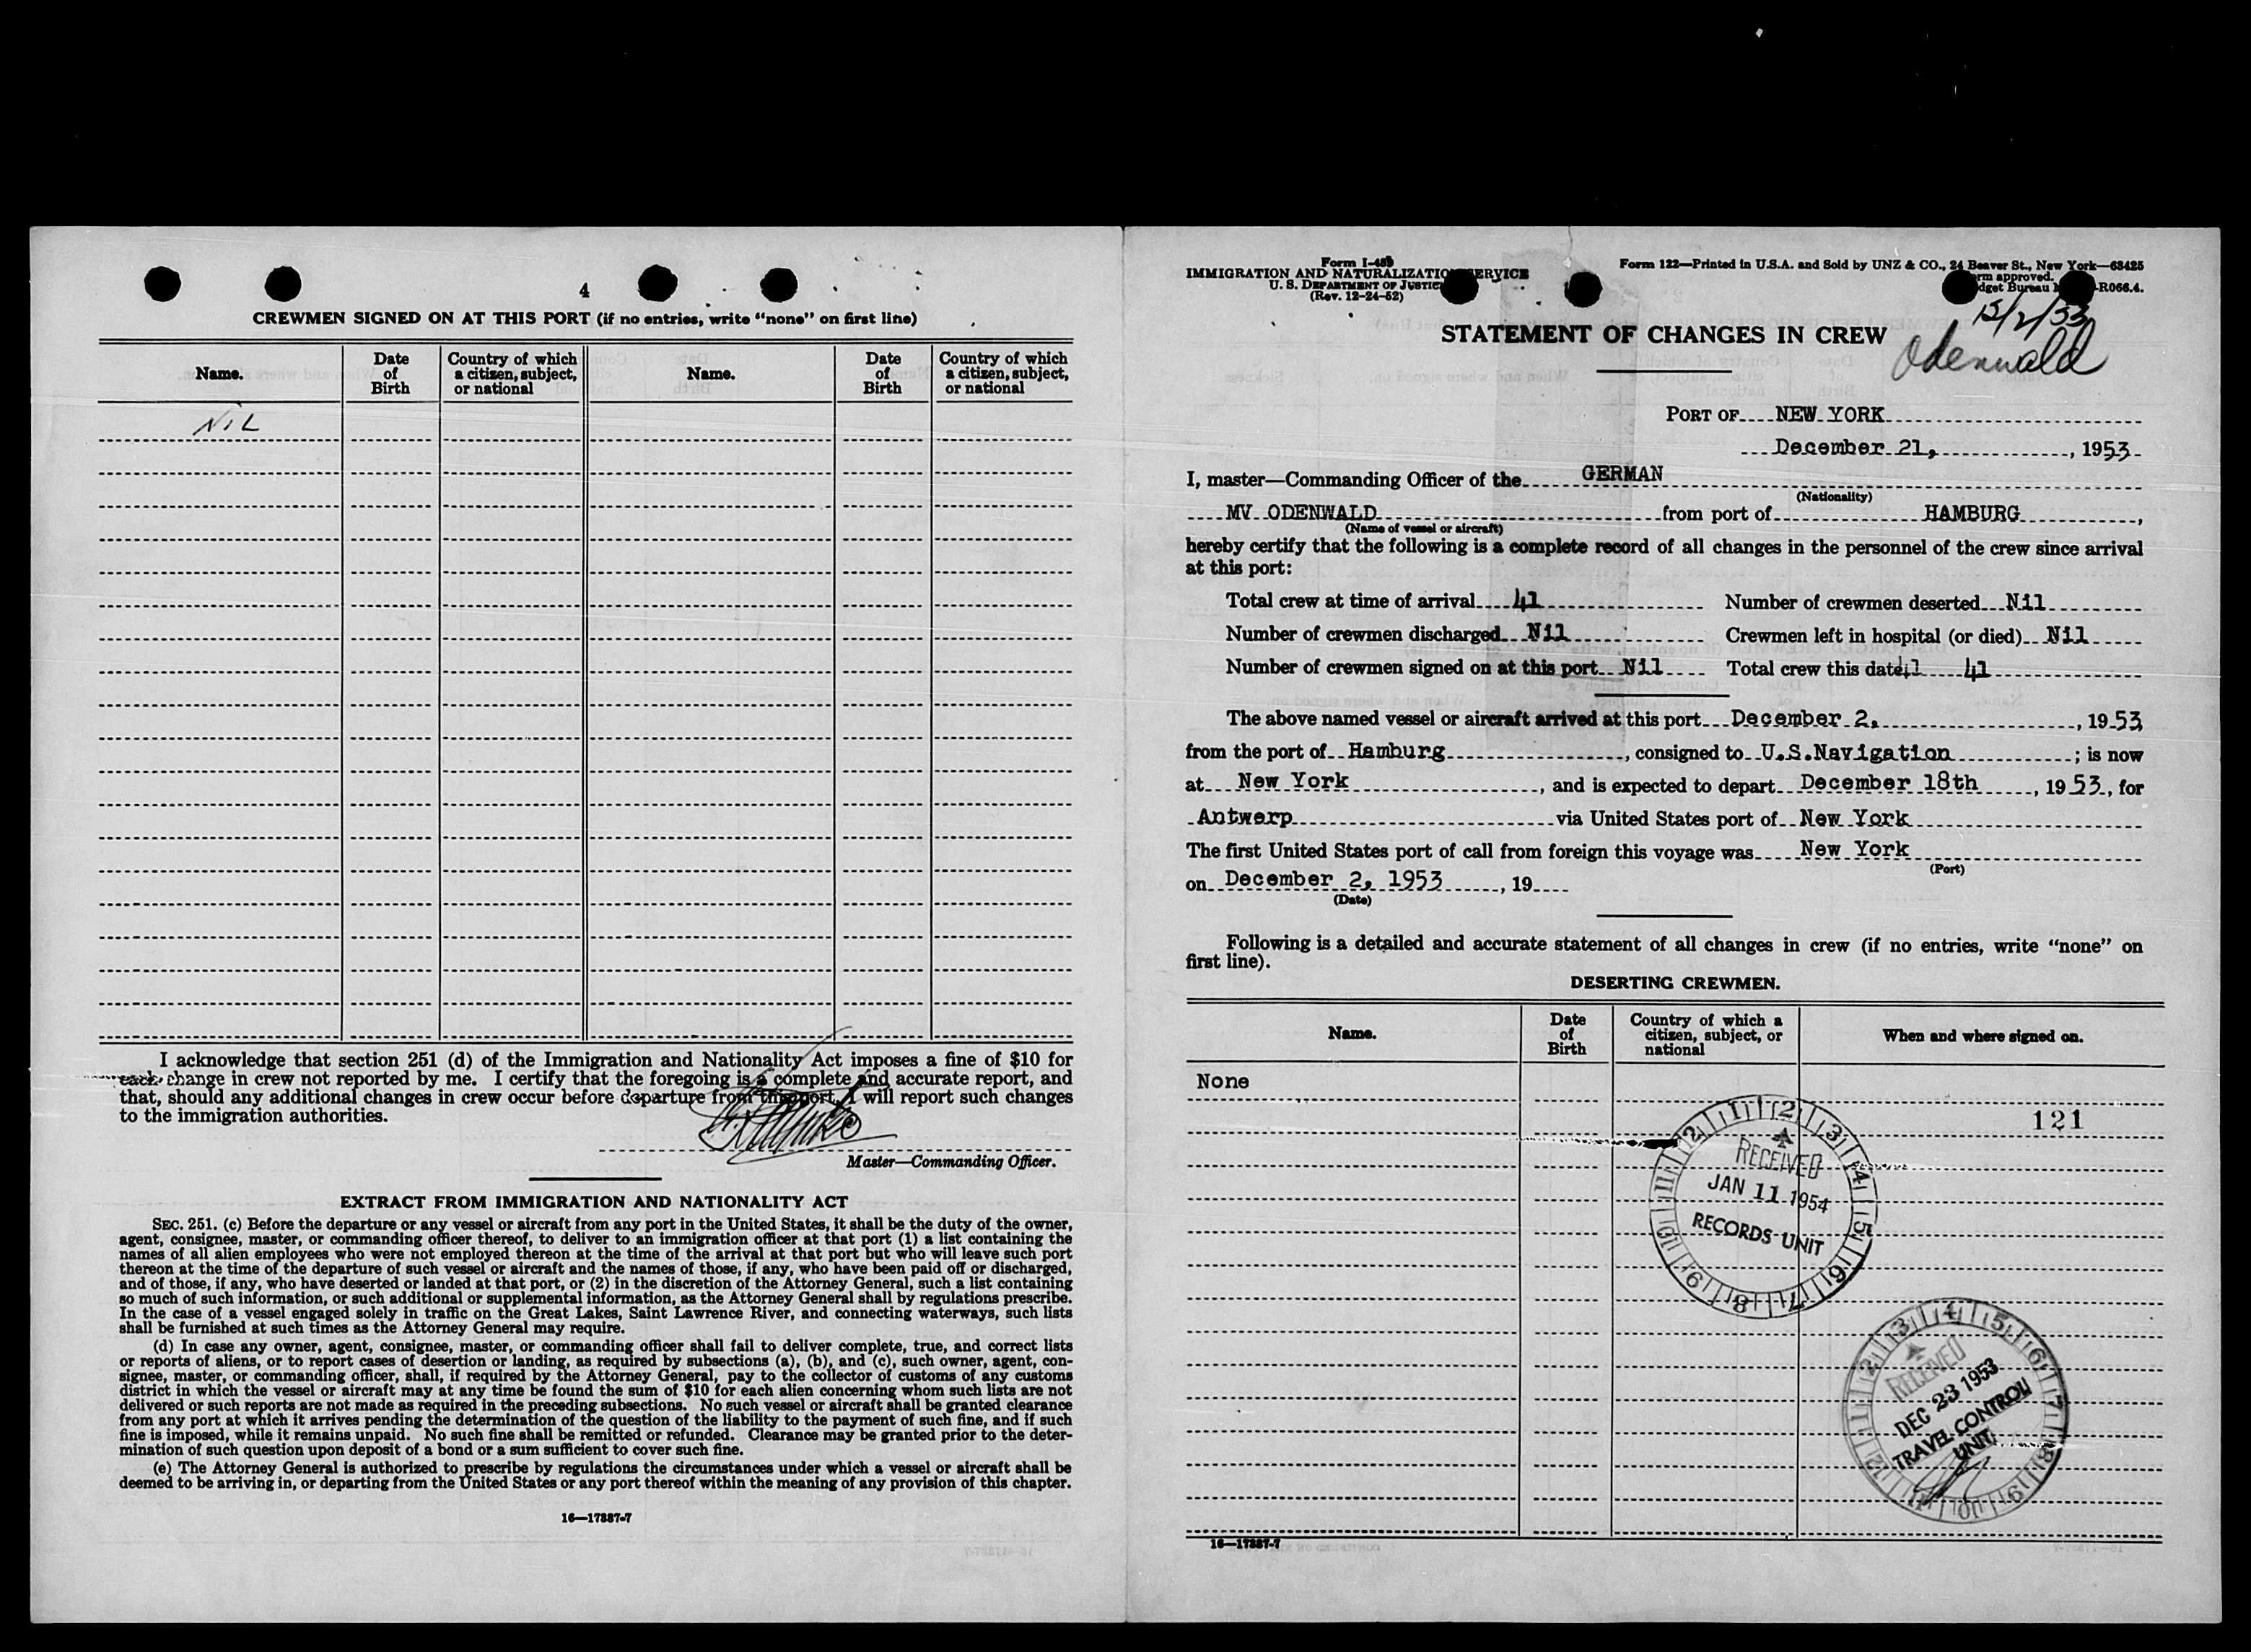 4
CREWMEN SIGNED ON AT THIS PORT (if no entries, write "none" on first line)
Name. Date of Birth Country of which a citizen, subject, or national Name. Date of Birth Country of which a citizen, subject, or national
NiL
I acknowledge that section 251 (d) of the Immigration and Nationality Act imposes a fine of $10 for
each change in crew not reported by me. I certify that the foregoing is a complete and accurate report, and
that, should any additional changes in crew occur before departure from this port, I will report such changes
to the immigration authorities.
Master—Commanding Officer.
EXTRACT FROM IMMIGRATION AND NATIONALITY ACT
SEC. 251. (c) Before the departure or any vessel or aircraft from any port in the United States, it shall be the duty of the owner,
agent, consignee, master, or commanding officer thereof, to deliver to an immigration officer at that port (1) a list containing the
names of all alien employees who were not employed thereon at the time of the arrival at that port but who will leave such port
thereon at the time of the departure of such vessel or aircraft and the names of those, if any, who have been paid off or discharged,
and of those, if any, who have deserted or landed at that port, or (2) in the discretion of the Attorney General, such a list containing
so much of such information, or such additional or supplemental information, as the Attorney General shall by regulations prescribe.
In the case of a vessel engaged solely in traffic on the Great Lakes, Saint Lawrence River, and connecting waterways, such lists
shall be furnished at such times as the Attorney General may require.
(d) In case any owner, agent, consignee, master, or commanding officer shall fail to deliver complete, true, and correct lists
or reports of aliens, or to report cases of desertion or landing, as required by subsections (a), (b), and (c), such owner, agent, con-
signee, master, or commanding officer, shall, if required by the Attorney General, pay to the collector of customs of any customs
district in which the vessel or aircraft may at any time be found the sum of $10 for each alien concerning whom such lists are not
delivered or such reports are not made as required in the preceding subsections. No such vessel or aircraft shall be granted clearance
from any port at which it arrives pending the determination of the question of the liability to the payment of such fine, and if such
fine is imposed, while it remains unpaid. No such fine shall be remitted or refunded. Clearance may be granted prior to the deter-
mination of such question upon deposit of a bond or a sum sufficient to cover such fine.
(e) The Attorney General is authorized to prescribe by regulations the circumstances under which a vessel or aircraft shall be
deemed to be arriving in, or departing from the United States or any port thereof within the meaning of any provision of this chapter.
16—17887-7
Form I-489
IMMIGRATION AND NATURALIZATION SERVICE
U. S. DEPARTMENT OF JUSTICE
(Rev. 12-24-52)
Form 122—Printed in U.S.A. and Sold by UNZ & CO., 24 Beaver St., New York—63425
approved.
Bureau R066.4.
12/2/53
Odenwald
STATEMENT OF CHANGES IN CREW
PORT OF NEW YORK
December 21, , 1953
I, master—Commanding Officer of the GERMAN
(Nationality)
MV ODENWALD from port of HAMBURG,
(Name of vessel or aircraft)
hereby certify that the following is a complete record of all changes in the personnel of the crew since arrival
at this port:
Total crew at time of arrival 41 Number of crewmen deserted Nil
Number of crewmen discharged Nil Crewmen left in hospital (or died) Nil
Number of crewmen signed on at this port Nil Total crew this date 41 41
The above named vessel or aircraft arrived at this port December 2, , 1953
from the port of Hamburg , consigned to U.S.Navigation ; is now
at New York , and is expected to depart December 18th , 1953, for
Antwerp via United States port of New York
The first United States port of call from foreign this voyage was New York
(Port)
on December 2, 1953 , 19
(Date)
Following is a detailed and accurate statement of all changes in crew (if no entries, write "none" on
first line).
DESERTING CREWMEN.
Name. Date of Birth Country of which a citizen, subject, or national When and where signed on.
None
121
RECEIVED
JAN 11 1954
RECORDS UNIT
RECEIVED
DEC 23 1953
TRAVEL CONTROL
UNIT
16—17887-7